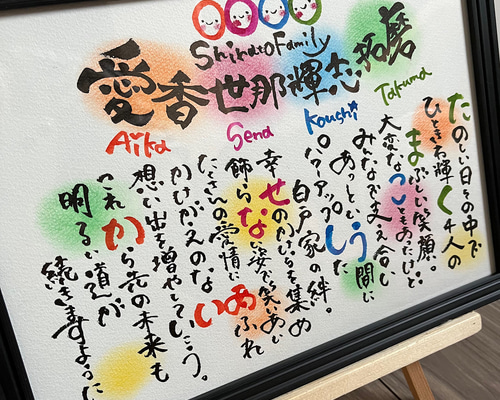 Shirato Family
愛香 世那 輝志 拓磨
Aika Sena Koushi Takuma
たのしい日その中で
ひときわ輝く4人の
まぶしい笑顔。
大変なこともあったけど
みんなで支え合い
あっという間に
パワーアップした
白戸家の絆。
幸せのかけらを集め
飾らない姿で笑いあい
たくさんの愛情にあふれ
かけがえのない
想い出を増やしていこう。
これから先の未来も
明るい道が
続きますように